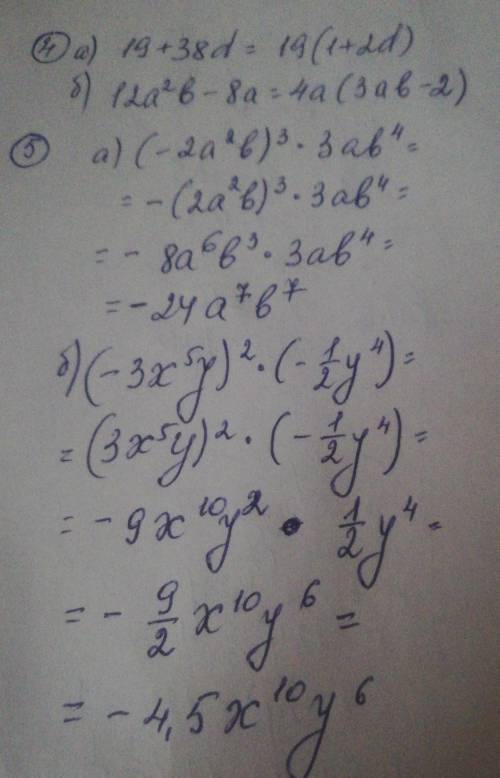 ④ а) 19+38d = 19(1+2d)
б) 12a²b − 8a = 4a(3ab−2)
⑤ а) (−2a²b)³ · 3ab⁴ =
= −(2a²b)³ · 3ab⁴ =
= − 8a⁶b³ · 3ab⁴ =
= −24a⁷b⁷
б) (−3x⁵y)² · (−1/2 y⁴) =
= (3x⁵y)² · (−1/2 y⁴) =
= −9x¹⁰y² · 1/2 y⁴ =
= − 9/2 x¹⁰y⁶ =
= −4,5x¹⁰y⁶